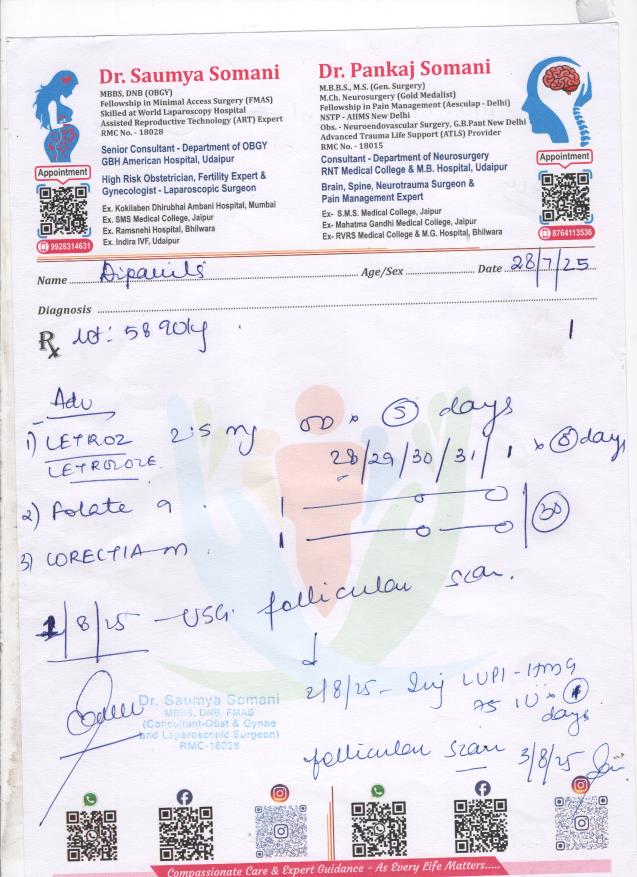 Dr. Saumya Somani
MBBS, DNB (OBGY)
Fellowship in Minimal Access Surgery (FMAS)
Skilled at World Laparoscopy Hospital
Assisted Reproductive Technology (ART) Expert
RMC No. - 18028
Senior Consultant - Department of OBGY
GBH American Hospital, Udaipur
High Risk Obstetrician, Fertility Expert &
Gynecologist - Laparoscopic Surgeon
Ex. Kokilaben Dhirubhai Ambani Hospital, Mumbai
Ex. SMS Medical College, Jaipur
Ex. Ramsnehi Hospital, Bhilwara
Ex. Indira IVF, Udaipur
Appointment
9928314631
Dr. Pankaj Somani
M.B.B.S., M.S. (Gen. Surgery)
M.Ch. Neurosurgery (Gold Medalist)
Fellowship in Pain Management (Aesculap - Delhi)
NSTP - AIIMS New Delhi
Obs. - Neuroendovascular Surgery, G.B.Pant New Delhi
Advanced Trauma Life Support (ATLS) Provider
RMC No. - 18015
Consultant - Department of Neurosurgery
RNT Medical College & M.B. Hospital, Udaipur
Brain, Spine, Neurotrauma Surgeon &
Pain Management Expert
Ex- S.M.S. Medical College, Jaipur
Ex- Mahatma Gandhi Medical College, Jaipur
Ex- RVRS Medical College & M.G. Hospital, Bhilwara
Appointment
8764113536
Name Age/Sex Date 28/7/25
Diagnosis
Rx wt: 58.90kg
Adv
1) LETROZ 2.5 mg OD x 5 days
LETROLOZE 28/29/30/31/1 x 5 days
2) Folate 9 1 30
3) CORECTIA m 1
1/8/25 - USG follicular scan.
↓
2/8/25 - Inj LUPI-HMG
75 IU x 1
days
follicular scan 3/8/25
Dr. Saumya Somani
MBBS, DNB, FMAS
(Consultant-Obst & Gynae
and Laparoscopic Surgeon)
RMC-18028
Compassionate Care & Expert Guidance - As Every Life Matters.....